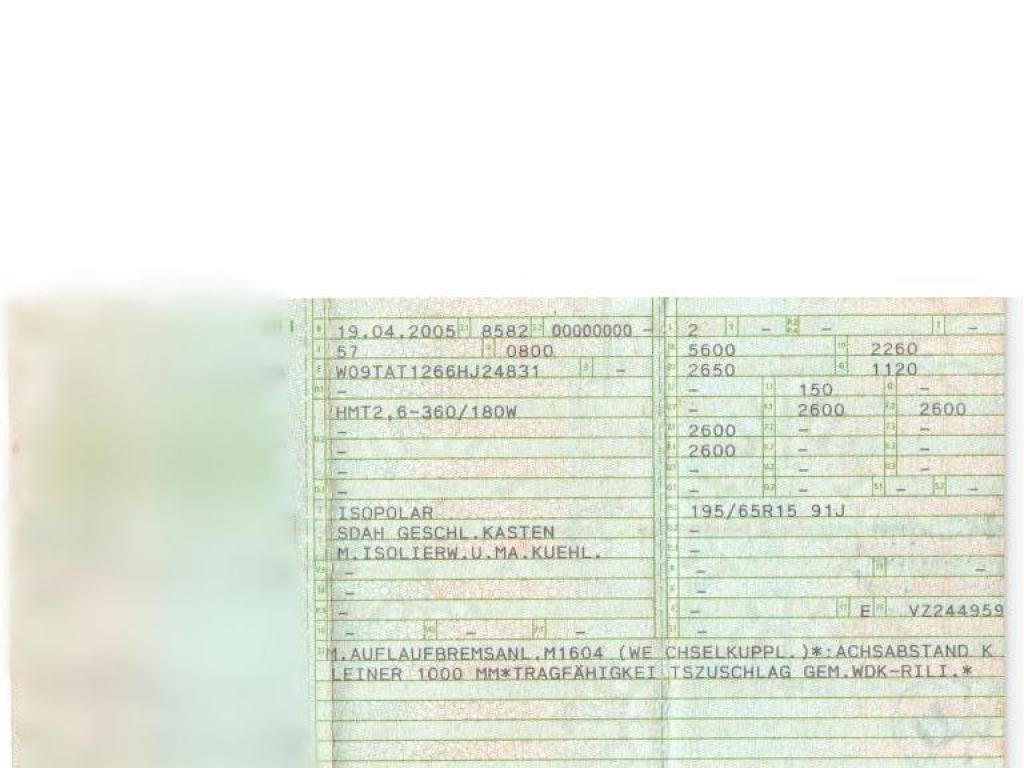 19.04.2005 8582 00000000 - 2 - - -
57 0800 5600 2260
W09TAT1266HJ24831 - 2650 1120
- - 150 -
HMT2,6-360/180W - 2600 2600
- 2600 - -
- 2600 - -
- - - -
- - - - -
ISOPOLAR 195/65R15 91J
SDAH GESCHL.KASTEN -
M.ISOLIERW.U.MA.KUEHL. -
- - -
- -
- - E VZ244959
- - - -
M.AUFLAUFBREMSANL.M1604 (WE CHSELKUPPL.)*:ACHSABSTAND K
LEINER 1000 MM*TRAGFÄHIGKEI TSZUSCHLAG GEM.WDK-RILI.*